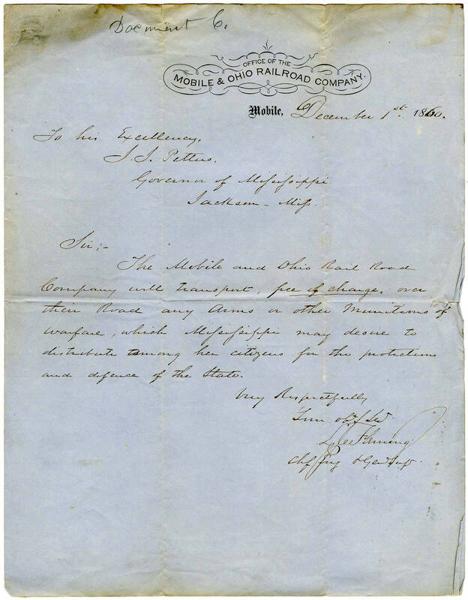 Document C.
OFFICE OF THE
MOBILE & OHIO RAILROAD COMPANY.
Mobile, December 1st. 1860.
To his Excellency,
J. J. Pettus.
Governor of Mississippi
Jackson - Miss.
Sir:-
The Mobile and Ohio Rail Road
Company will transport, free of charge, over
their Road any Arms or other Munitions of
warfare, which Mississippi may desire to
distribute among her citizens for the protection
and defence of the State.
Very Respectfully
Your obt Svt
L. J. Fleming
Chf Eng & Gen Supt.